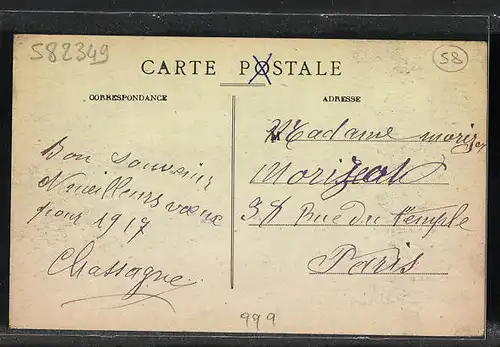 582349
58
CARTE POSTALE
CORRESPONDANCE
ADRESSE
Bon souvenir
& meilleurs vœux
pour 1917
Chassagne
Madame
38 Rue du Temple
Paris
999